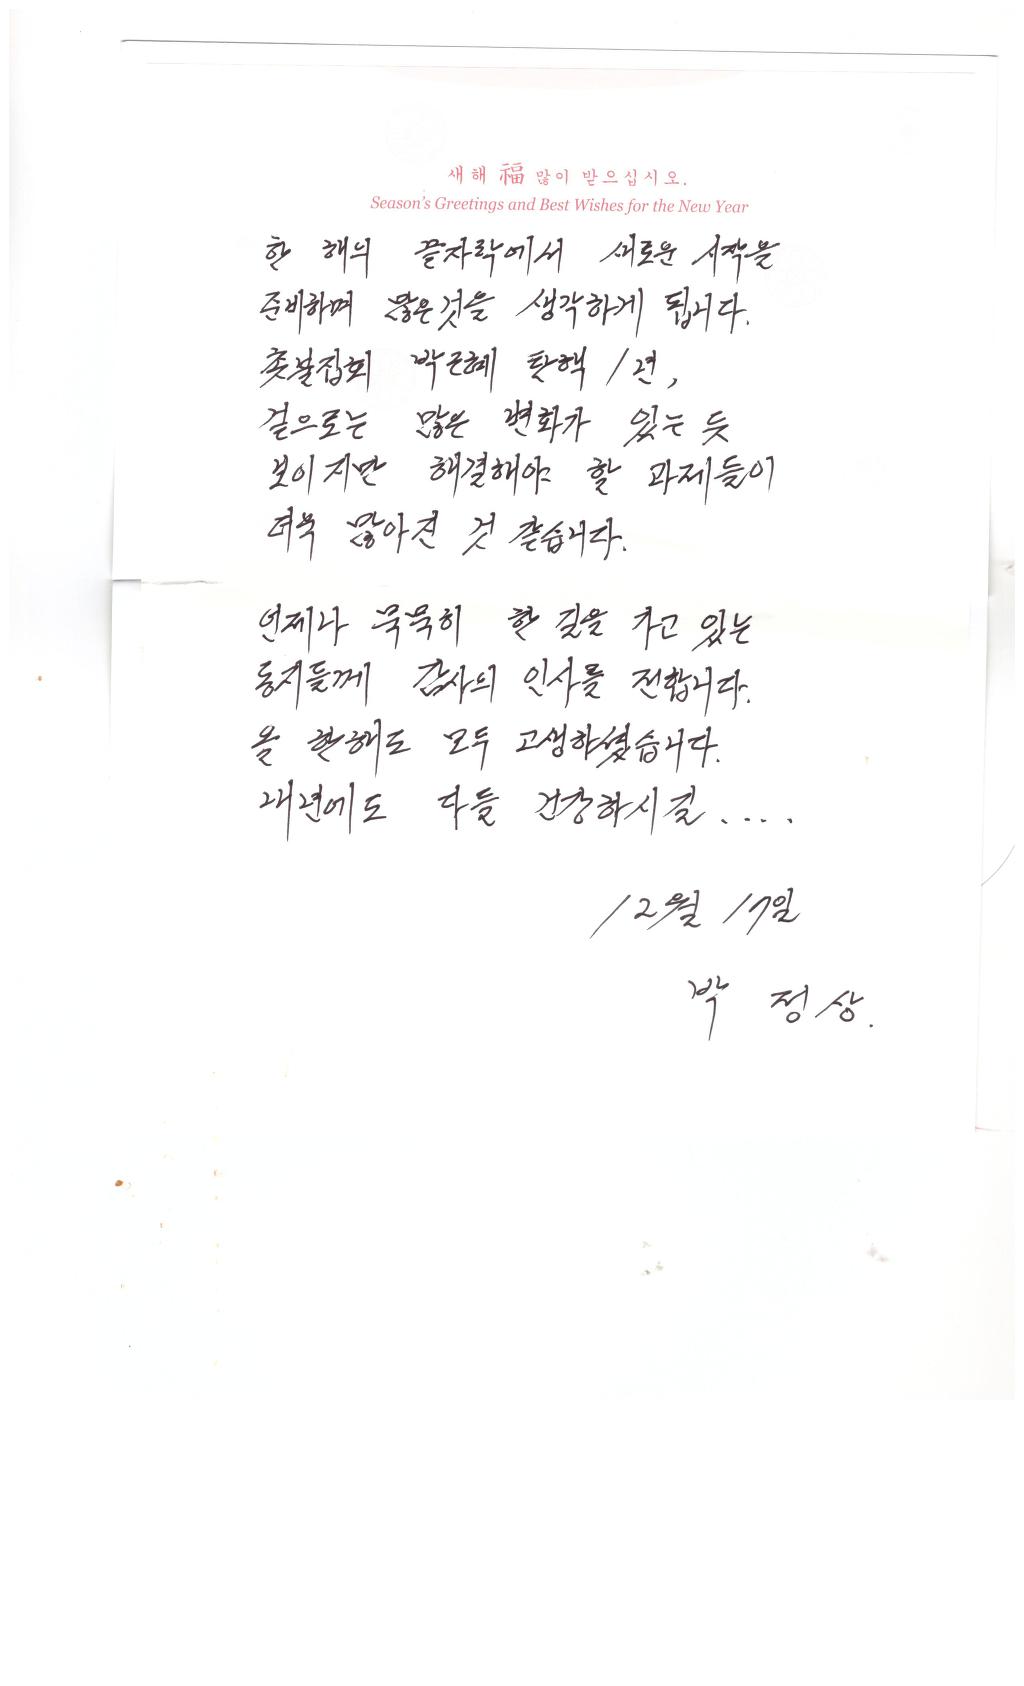 새해 福 많이 받으십시오.
Season's Greetings and Best Wishes for the New Year
한 해의 끝자락에서 새로운 시작을
준비하며 많은것을 생각하게 됩니다.
촛불집회 박근혜 탄핵 1년,
겉으로는 많은 변화가 있는 듯
보이지만 해결해야 할 과제들이
더욱 많아진 것 같습니다.
언제나 묵묵히 한 길을 가고 있는
동지들께 감사의 인사를 전합니다.
올 한해도 모두 고생하셨습니다.
내년에도 다들 건강하시길....
12월 17일
박 정상.